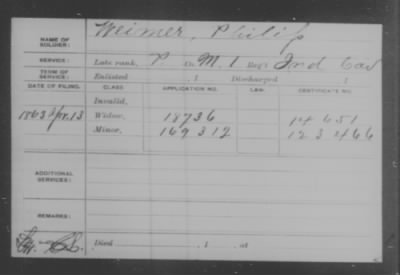 NAME OF SOLDIER: Weimer, Philip
SERVICE: Late rank, P. Co. M, 1 Reg't Ind Cav
TERM OF SERVICE: Enlisted , 1 Discharged , 1
DATE OF FILING. CLASS APPLICATION NO. LAW. CERTIFICATE NO.
Invalid,
1863 Apr. 13 Widow, 18736 14651
Minor, 169312 123466
ADDITIONAL SERVICES:
REMARKS:
Died , 1 , at